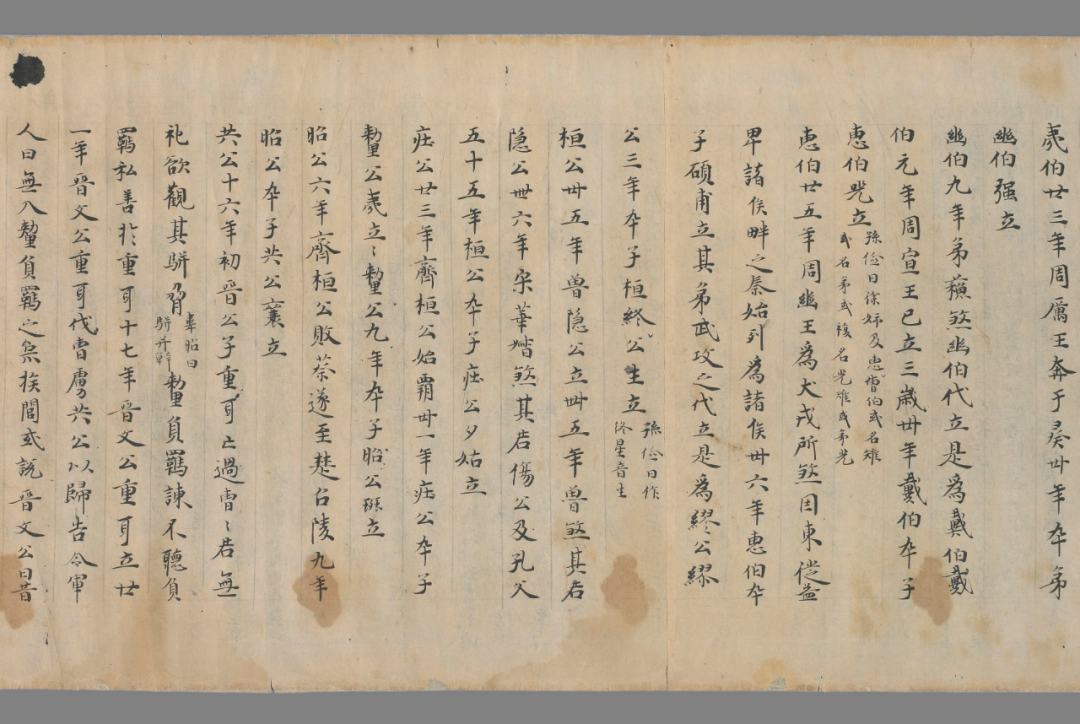 夷伯廿三年周厲王奔于彘卅年卒弟
幽伯强立
幽伯九年弟蘓煞幽伯代立是爲戴伯戴
伯元年周宣王已立三歳卅年戴伯卒子
惠伯兕立
孫儉曰徐姉反惠曹伯或名雉
或名弟或複名兕雉或弟兕
惠伯廿五年周幽王爲犬戎所煞因東徙益
卑諸侯畔之秦始列爲諸侯卅六年惠伯卒
子碩甫立其弟武攻之代立是爲繆公繆
公三年卒子桓終公生立
孫儉曰作
終星音生
桓公卅五年魯隐公立卌五年魯煞其君
隐公卌六年宋華督煞其君傷公及孔父
五十五年桓公卒子庄公夕姑立
庄公廿三年齊桓公始覇卅一年庄公卒子
釐公夷立〻釐公九年卒子昭公班立
昭公六年齊桓公敗蔡遂至楚召陵九年
昭公卒子共公襄立
共公十六年初晋公子重耳亡過曹〻君無
礼欲觀其駢脅
韋昭曰
駢并幹
釐負羈諫不聽負
羈私善於重耳十七年晋文公重耳立廿
一年晋文公重耳伐曹虜共公以歸告令軍
人曰無入釐負羈之宗族閭或説晋文公曰昔